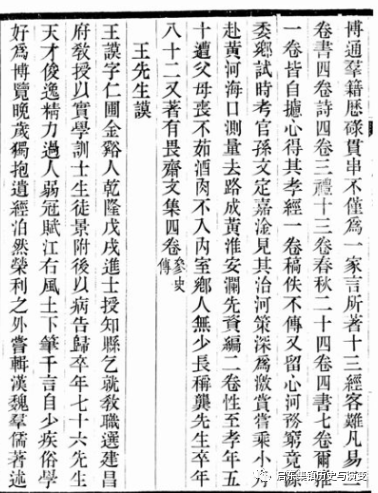 博通羣籍歷碌貫串不僅為一家言所著十三經客難凡易一
卷書四卷詩四卷三禮十三卷春秋二十四卷四書七卷爾雅
一卷皆自攄心得其孝經一卷稿佚不傳又留心河務窮竟原
委鄉試時考官孫文定嘉淦見其治河策深為激賞嘗乘小舟
赴黃河海口測量去路成黃淮安瀾先資編二卷性至孝年五
十遭父母喪不茹酒肉不入內室鄉人無少長稱龔先生卒年
八十二又著有畏齋文集四卷參史傳
王先生謨
王謨字仁圃金谿人乾隆戊戌進士授知縣乞就教職選建昌
府教授以實學訓士生徒景附後以病告歸卒年七十六先生
天才俊逸精力過人弱冠賦江右風土下筆千言自少疾俗學
好為博覽晚歲獨抱遺經泊然榮利之外嘗輯漢魏羣儒著述